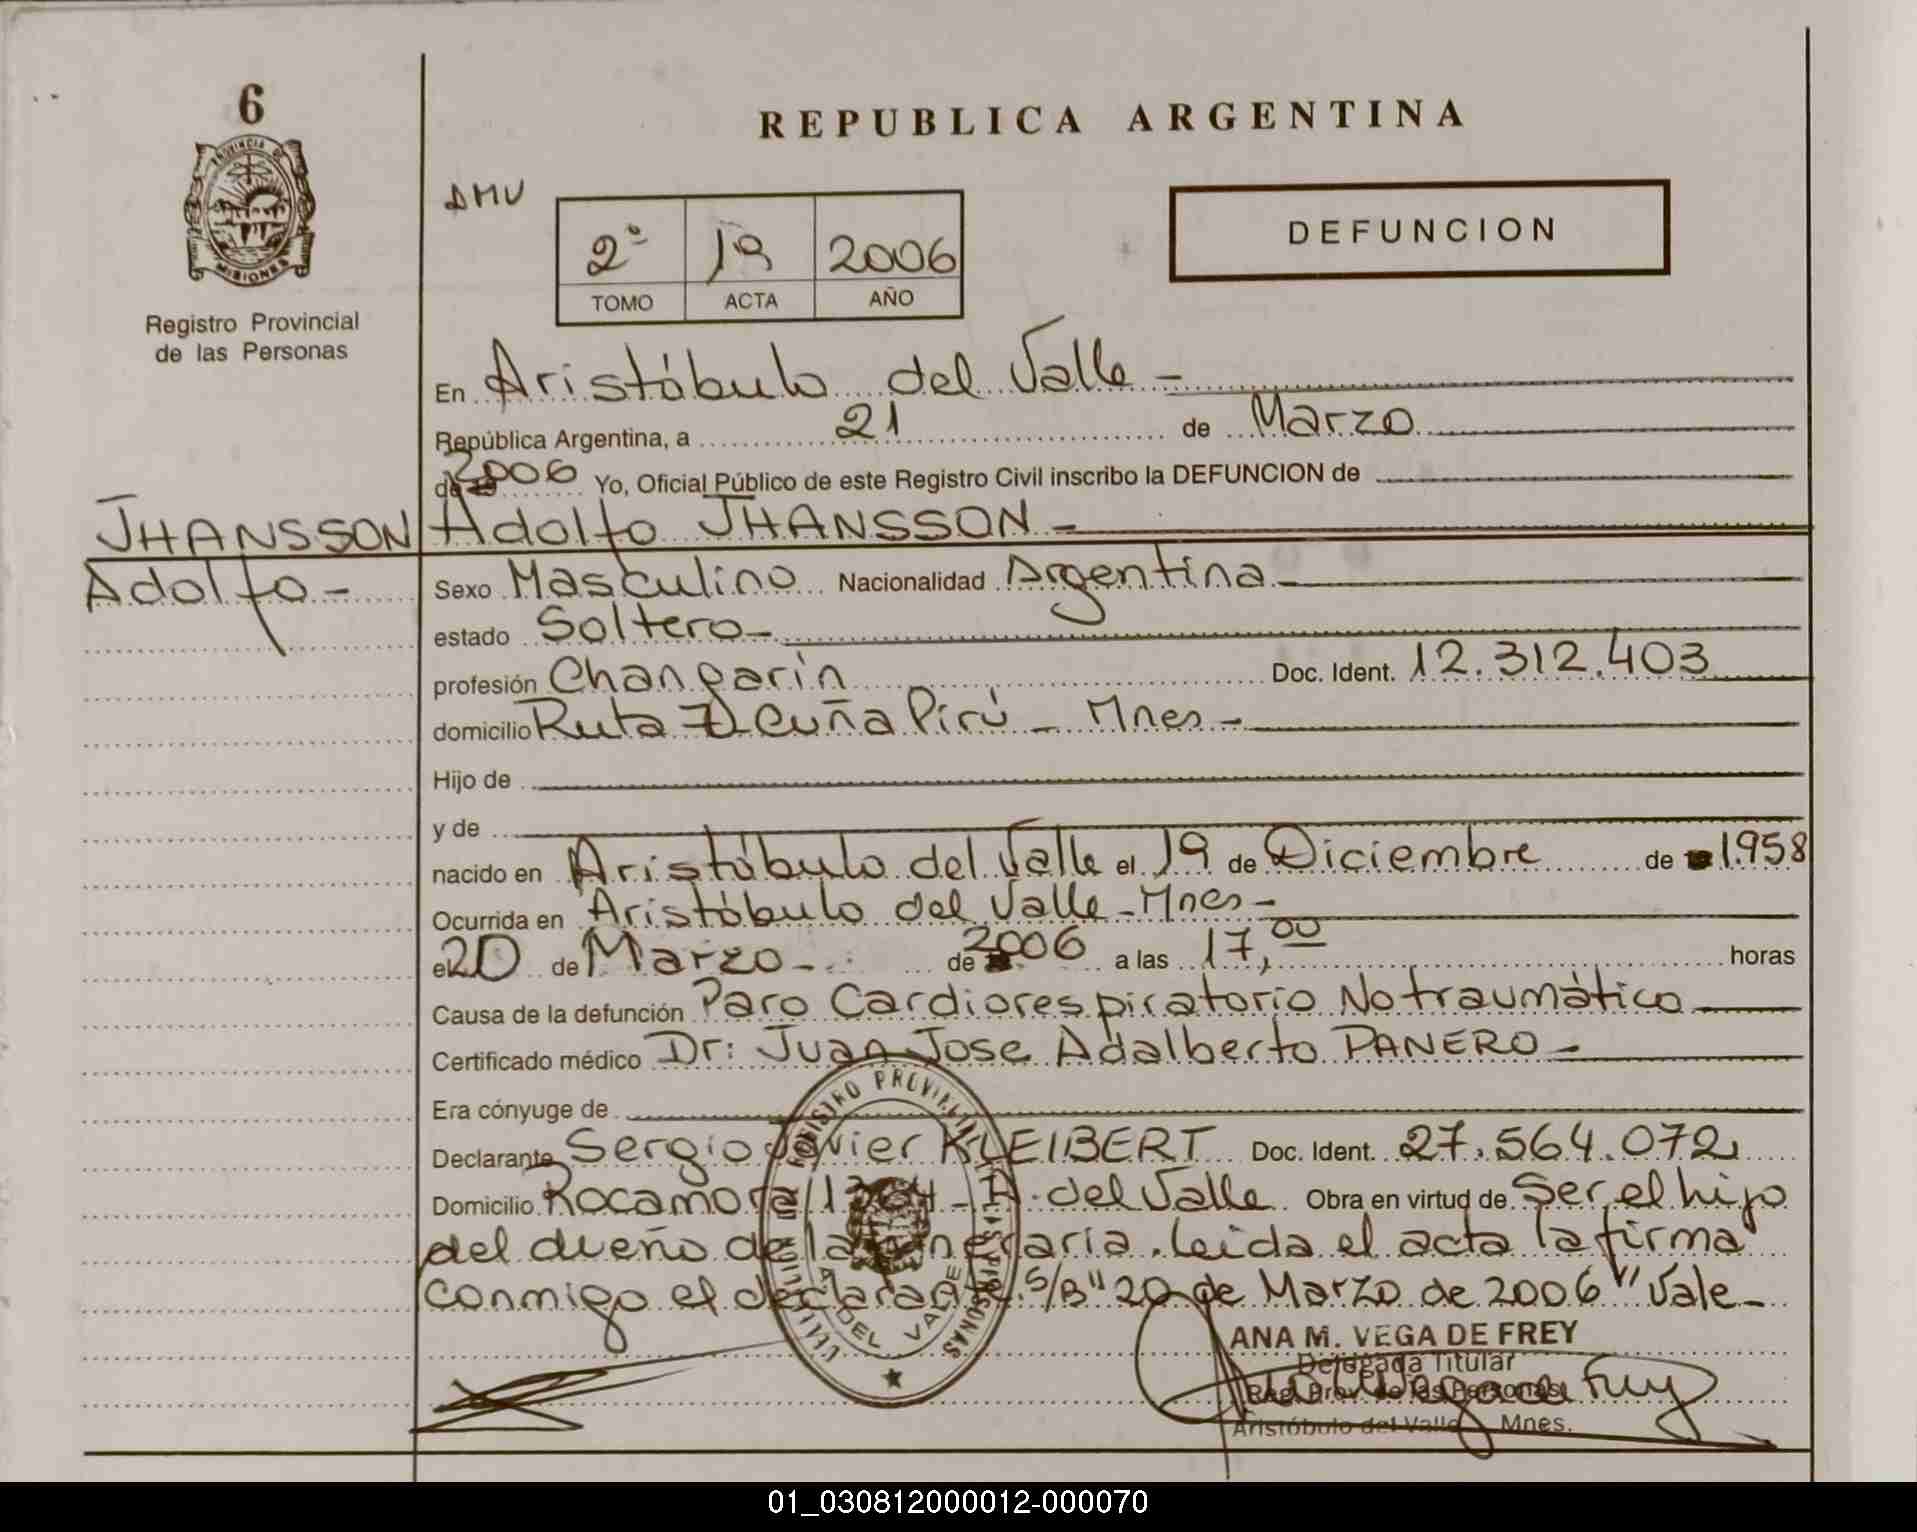 6
PROVINCIA DE
MISIONES
Registro Provincial
de las Personas
REPUBLICA ARGENTINA
DMV
2º 19 2006
TOMO ACTA AÑO
DEFUNCION
En Aristóbulo del Valle -
República Argentina, a 21 de Marzo
de 2006 Yo, Oficial Público de este Registro Civil inscribo la DEFUNCION de
JHANSSON Adolfo JHANSSON -
Adolfo - Sexo Masculino Nacionalidad Argentina -
estado Soltero -
profesión Changarín Doc. Ident. 12.312.403
domicilio Ruta 7 Acuña Pirú - Mnes -
Hijo de
y de
nacido en Aristóbulo del Valle el 19 de Diciembre de 1.958
Ocurrida en Aristóbulo del Valle - Mnes -
el 20 de Marzo - de 2006 a las 17,00 horas
Causa de la defunción Paro Cardiorespiratorio No traumático
Certificado médico Dr: Juan Jose Adalberto PANERO -
Era cónyuge de
Declarante Sergio Javier KLEIBERT Doc. Ident. 27.564.072
Domicilio Rocamora - A. del Valle Obra en virtud de Ser el hijo
del dueño de la funeraria. leida el acta la firma
conmigo el declarante. S/B "20 de Marzo de 2006" Vale -
REGISTRO PROVINCIAL DE LAS PERSONAS
A. DEL VALLE
ANA M. VEGA DE FREY
Delegada Titular
Reg. Prov. de las Personas
Aristóbulo del Valle Mnes.
01_030812000012-000070